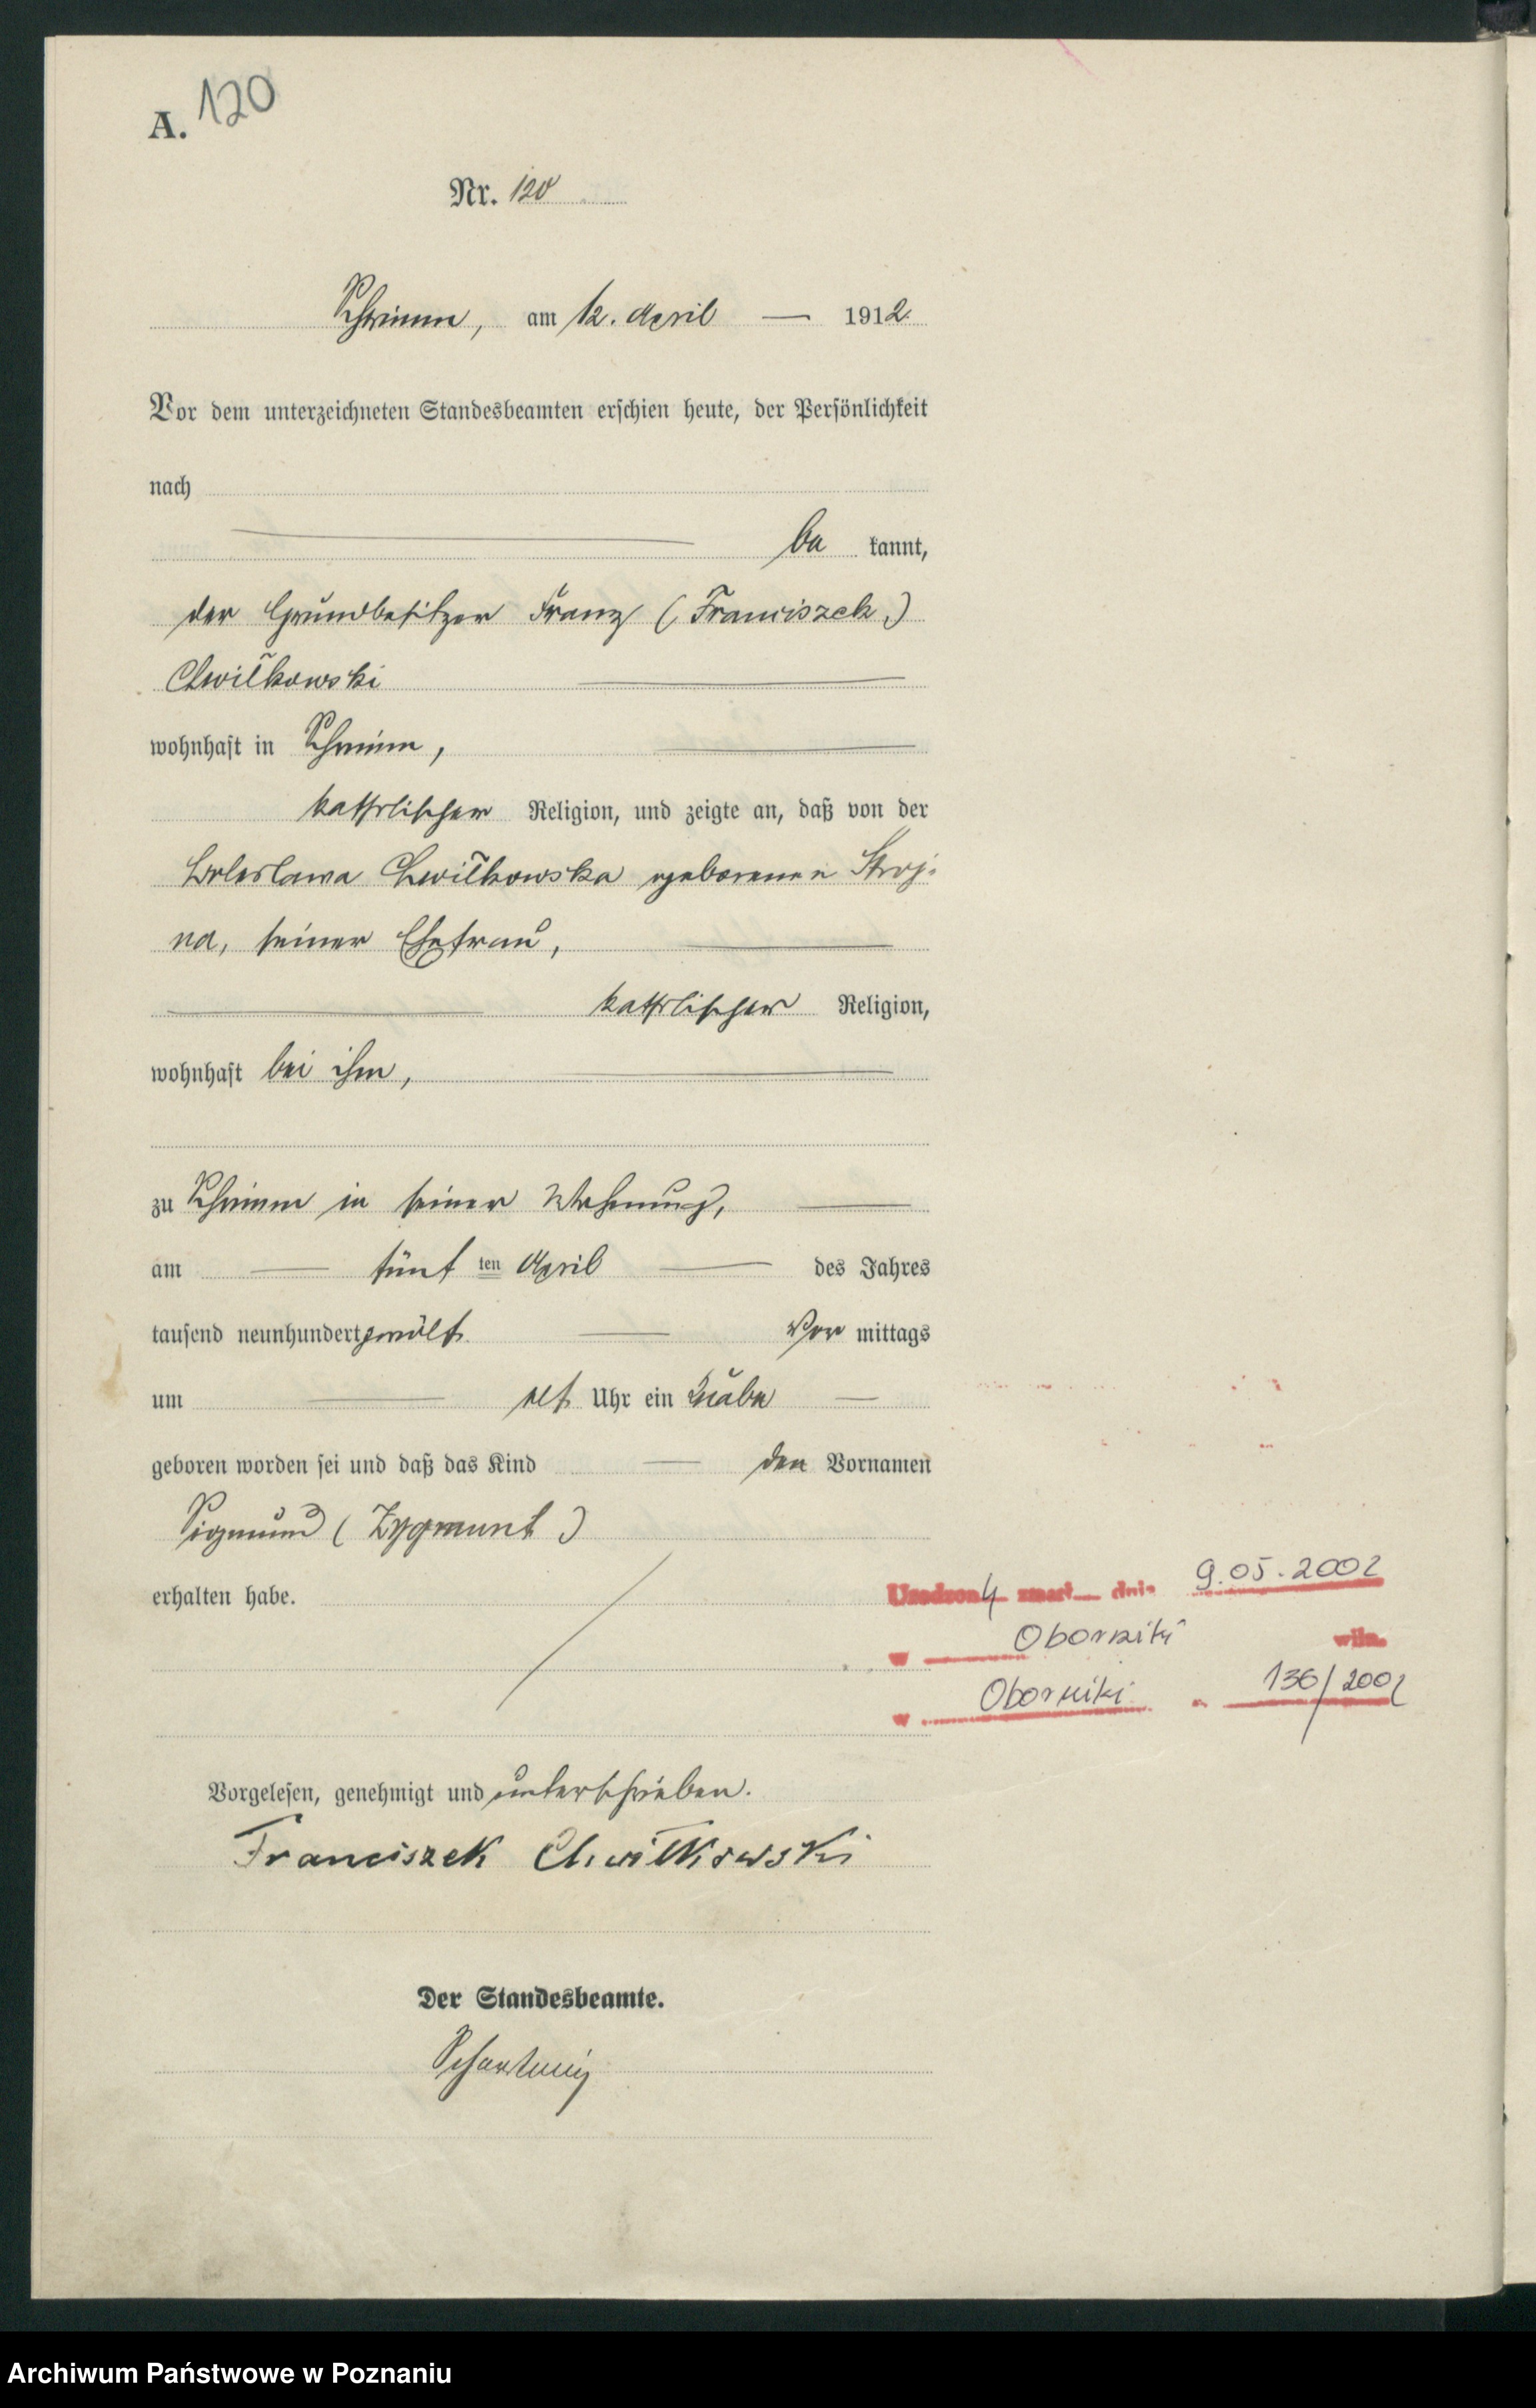 A. 120
Nr. 120
Schrimm, am 12. April — 1912.
Vor dem unterzeichneten Standesbeamten erschien heute, der Persönlichkeit
nach
be kannt,
der Grundbesitzer Franz (Franciszek)
Chwiłkowski
wohnhaft in Schrimm,
katholischer Religion, und zeigte an, daß von der
Boleslawa Chwiłkowska geborenen Stroj-
na, seiner Ehefrau,
katholischer Religion,
wohnhaft bei ihm,
zu Schrimm in seiner Wohnung,
am — fünf ten April — des Jahres
tausend neunhundert zwölf — Vor mittags
um — elf Uhr ein Knabe —
geboren worden sei und daß das Kind — den Vornamen
Sigmund (Zygmunt)
erhalten habe.
Urodzony zmarł dnia 9.05.2002
w Oborniki wlkp.
w Oborniki 136/2002
Vorgelesen, genehmigt und unterschrieben.
Franciszek Chwiłkowski
Der Standesbeamte.
Archiwum Państwowe w Poznaniu